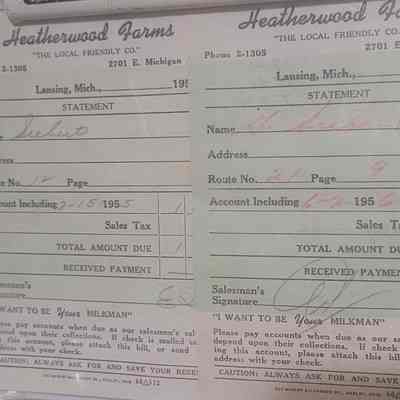 Heatherwood Farms
"THE LOCAL FRIENDLY CO."
2-1305 2701 E. Michigan
Lansing, Mich., 195
STATEMENT
Seibert
Route No. 12 Page
Account Including 2-15 1955
Sales Tax
TOTAL AMOUNT DUE 1
RECEIVED PAYMENT
Salesman's
Signature
"I WANT TO BE Your MILKMAN"
Please pay accounts when due as our salesmen's sal
depend upon their collections. If check is mailed
this account, please attach this bill, or send
address with your check.
CAUTION: ALWAYS ASK FOR AND SAVE YOUR RECE
Heatherwood Fa
"THE LOCAL FRIENDLY CO.
Phone 2-1305 2701 E
Lansing, Mich.,
STATEMENT
Name
Address
Route No. 21 Page 9
Account Including 6-2 1956
Sales Tax
TOTAL AMOUNT DU
RECEIVED PAYMEN
Salesman's
Signature
"I WANT TO BE Your MILKMAN"
Please pay accounts when due as our s
depend upon their collections. If check
ing this account, please attach this bill
address with your check.
CAUTION: ALWAYS ASK FOR AND SAVE Y